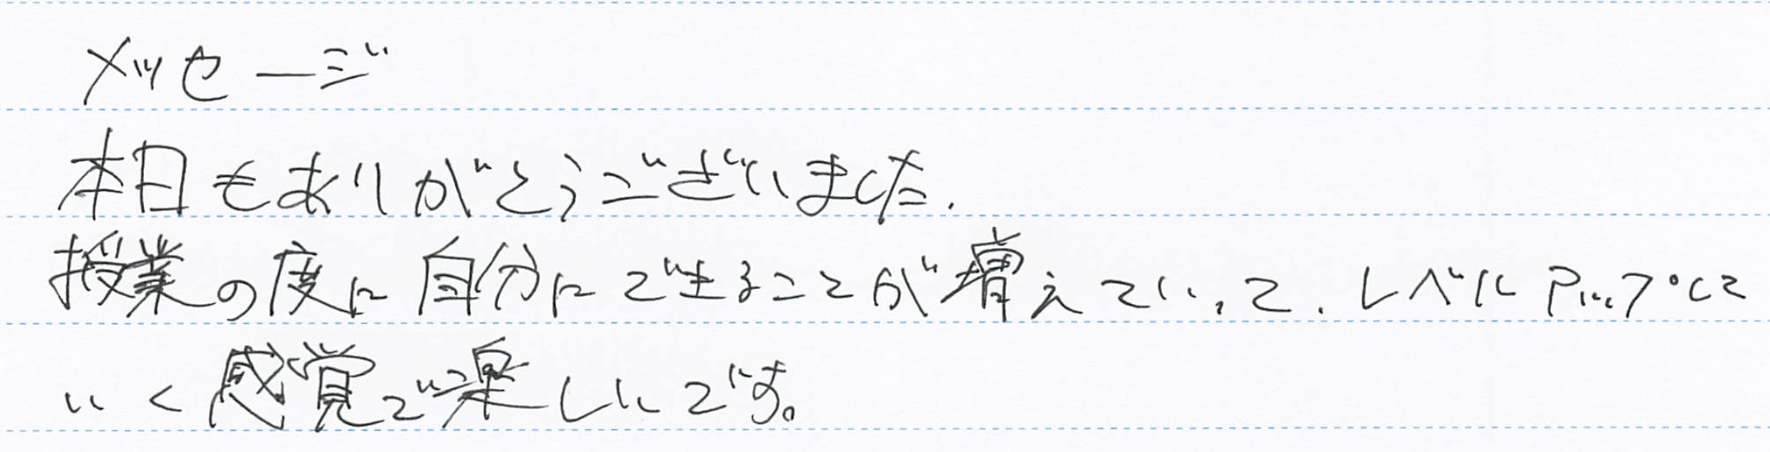 メッセージ
本日もありがとうございました.
授業の度に自分にできることが増えていって、レベルアップして
いく感覚で楽しいです。